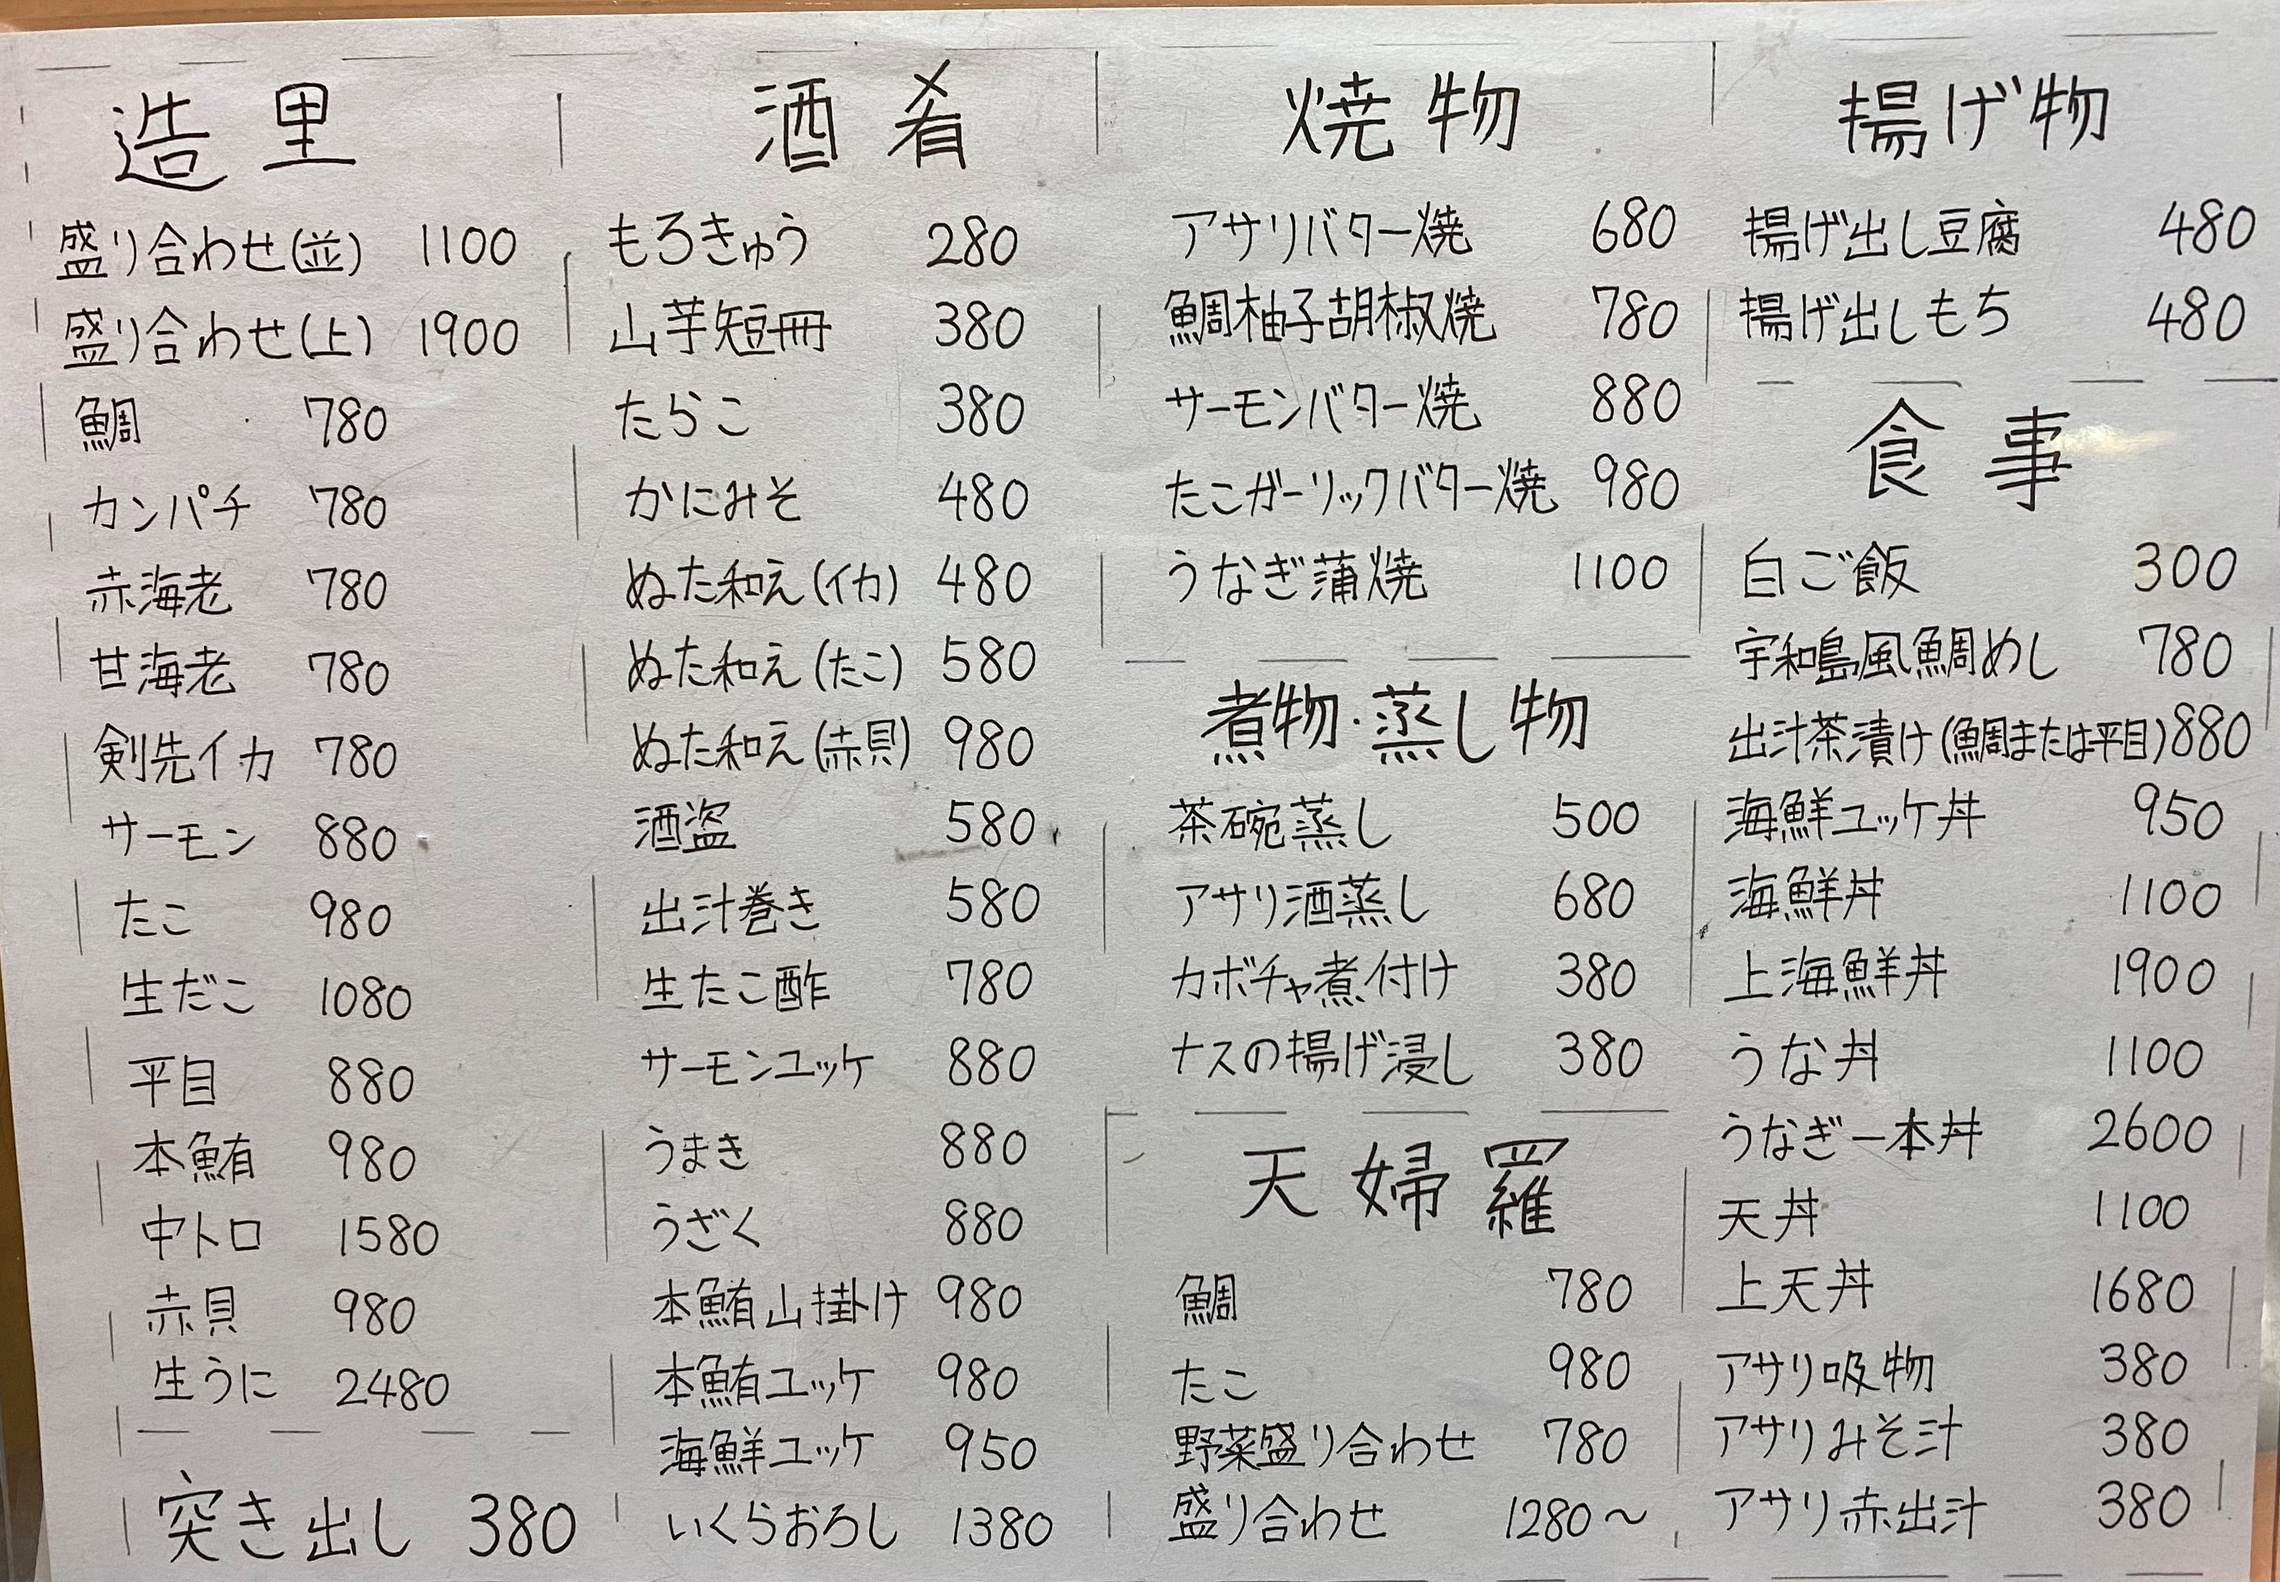 造里
盛り合わせ(並) 1100
盛り合わせ(上) 1900
鯛 780
カンパチ 780
赤海老 780
甘海老 780
剣先イカ 780
サーモン 880
たこ 980
生だこ 1080
平目 880
本鮪 980
中トロ 1580
赤貝 980
生うに 2480
突き出し 380
酒肴
もろきゅう 280
山芋短冊 380
たらこ 380
かにみそ 480
ぬた和え(イカ) 480
ぬた和え(たこ) 580
ぬた和え(赤貝) 980
酒盗 580
出汁巻き 580
生たこ酢 780
サーモンユッケ 880
うまき 880
うざく 880
本鮪山掛け 980
本鮪ユッケ 980
海鮮ユッケ 950
いくらおろし 1380
焼物
アサリバター焼 680
鯛柚子胡椒焼 780
サーモンバター焼 880
たこガーリックバター焼 980
うなぎ蒲焼 1100
煮物・蒸し物
茶碗蒸し 500
アサリ酒蒸し 680
カボチャ煮付け 380
ナスの揚げ浸し 380
天婦羅
鯛 780
たこ 980
野菜盛り合わせ 780
盛り合わせ 1280〜
揚げ物
揚げ出し豆腐 480
揚げ出しもち 480
食事
白ご飯 300
宇和島風鯛めし 780
出汁茶漬け(鯛または平目) 880
海鮮ユッケ丼 950
海鮮丼 1100
上海鮮丼 1900
うな丼 1100
うなぎ一本丼 2600
天丼 1100
上天丼 1680
アサリ吸物 380
アサリみそ汁 380
アサリ赤出汁 380